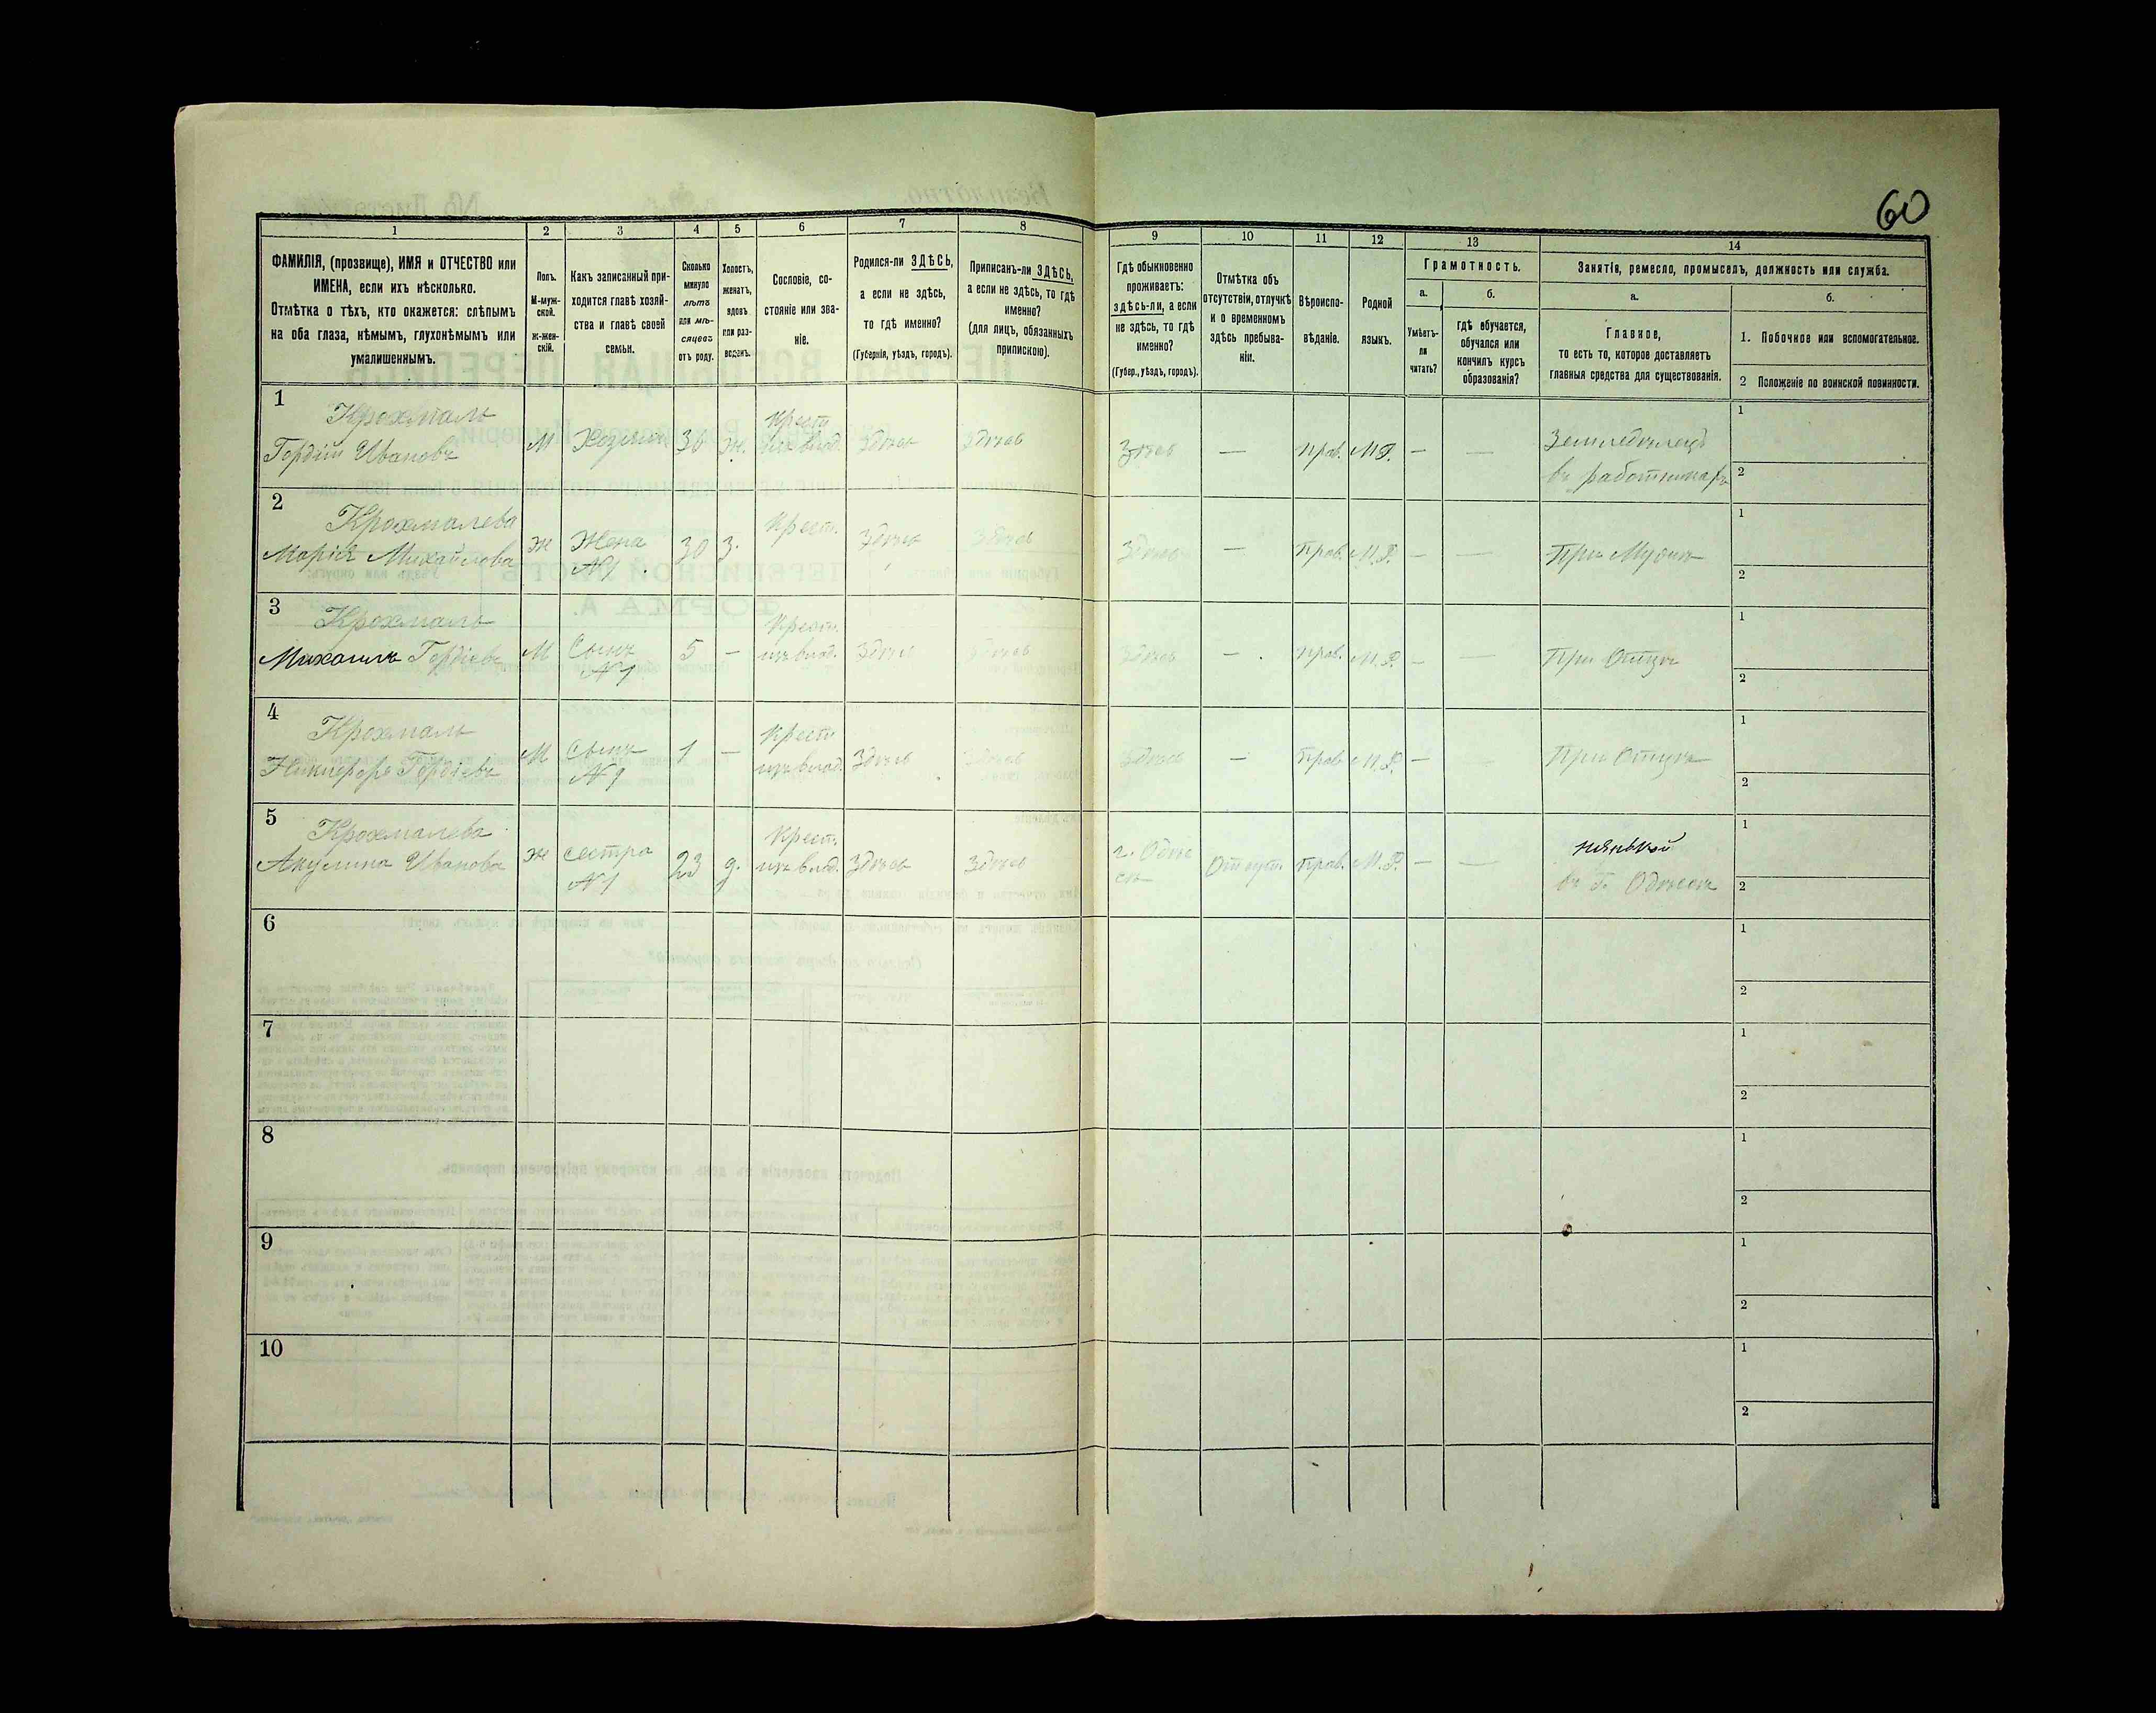 60
1
2
3
4
5
6
7
8
9
10
11
12
13
14
ФАМИЛІЯ, (прозвище), ИМЯ и ОТЧЕСТВО или
ИМЕНА, если ихъ нѣсколько.
Отмѣтка о тѣхъ, кто окажется: слѣпымъ
на оба глаза, нѣмымъ, глухонѣмымъ или
умалишеннымъ.
Полъ.
М-муж-
ской.
Ж-жен-
скій.
Какъ записанный при-
ходится главѣ хозяй-
ства и главѣ своей
семьи.
Сколько
минуло
лѣтъ
или мѣ-
сяцевъ
отъ роду.
Холостъ,
женатъ,
вдовъ
или раз-
веденъ.
Сословіе, со-
стояніе или зва-
ніе.
Родился-ли ЗДѢСЬ,
а если не здѣсь,
то гдѣ именно?
(Губернія, уѣздъ, городъ).
Приписанъ-ли ЗДѢСЬ,
а если не здѣсь, то гдѣ
именно?
(для лицъ, обязанныхъ
припискою).
Гдѣ обыкновенно
проживаетъ:
здѣсь-ли, а если
не здѣсь, то гдѣ
именно?
(Губер., уѣздъ, городъ).
Отмѣтка объ
отсутствіи, отлучкѣ
и о временномъ
здѣсь пребыва-
ніи.
Вѣроиспо-
вѣданіе.
Родной
языкъ.
Грамотность.
а.
Умѣетъ-
ли
читать?
б.
Гдѣ обучается,
обучался или
кончилъ курсъ
образованія?
Занятія, ремесло, промыселъ, должность или служба.
а.
Главное,
то есть то, которое доставляетъ
главныя средства для существованія.
б.
1. Побочное или вспомогательное.
2 Положеніе по воинской повинности.
1
Крохмаль
Гордій Ивановъ
М
Хозяинъ
36
ж.
Крест.
изъ влад.
Здѣсь
Здѣсь
Здѣсь
—
прав.
М.Р.
—
—
Земледѣлецъ
въ работникахъ
1
2
2
Крохмалева
Марія Михайлова
ж
Жена
№1
30
з.
Крест.
Здѣсь
Здѣсь
Здѣсь
—
Прав.
М.Р.
—
—
При Мужѣ
1
2
3
Крохмаль
Михаилъ Гордіевъ
М
Сынъ
№1
5
—
Крест.
изъ влад.
Здѣсь
Здѣсь
Здѣсь
—
прав.
М.Р.
—
—
При Отцѣ
1
2
4
Крохмаль
Никифоръ Гордіевъ
М
Сынъ
№1
1
—
Крест.
изъ влад.
Здѣсь
Здѣсь
Здѣсь
—
Прав.
М.Р.
—
—
При Отцѣ
1
2
5
Крохмалева
Акулина Иванова
ж
сестра
№1
23
д.
Крест.
изъ влад.
Здѣсь
Здѣсь
г. Одес
съ
Отлуч.
Прав.
М.Р.
—
—
нянькой
въ г. Одессѣ
1
2
6
1
2
7
1
2
8
1
2
9
1
2
10
1
2